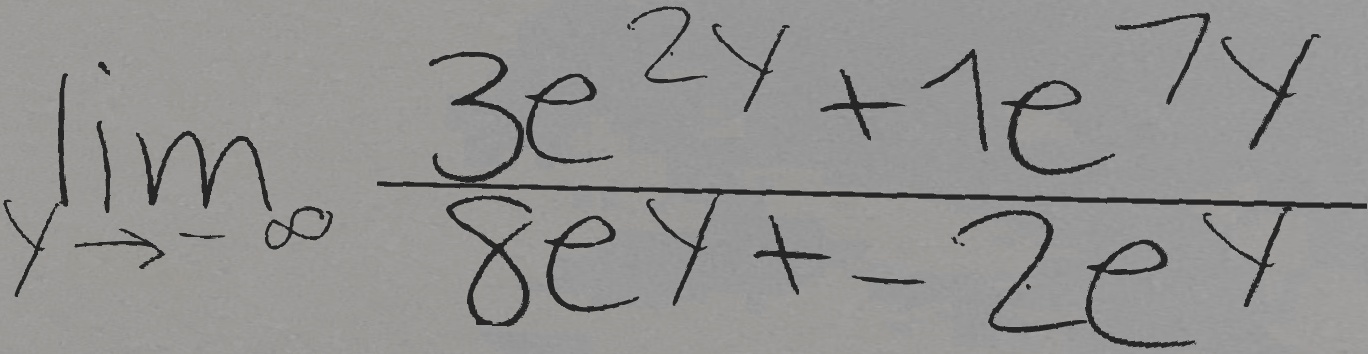 \lim_{y \to -\infty} \frac{3e^{2y} + 1e^{7y}}{8e^{y} + -2e^{y}}